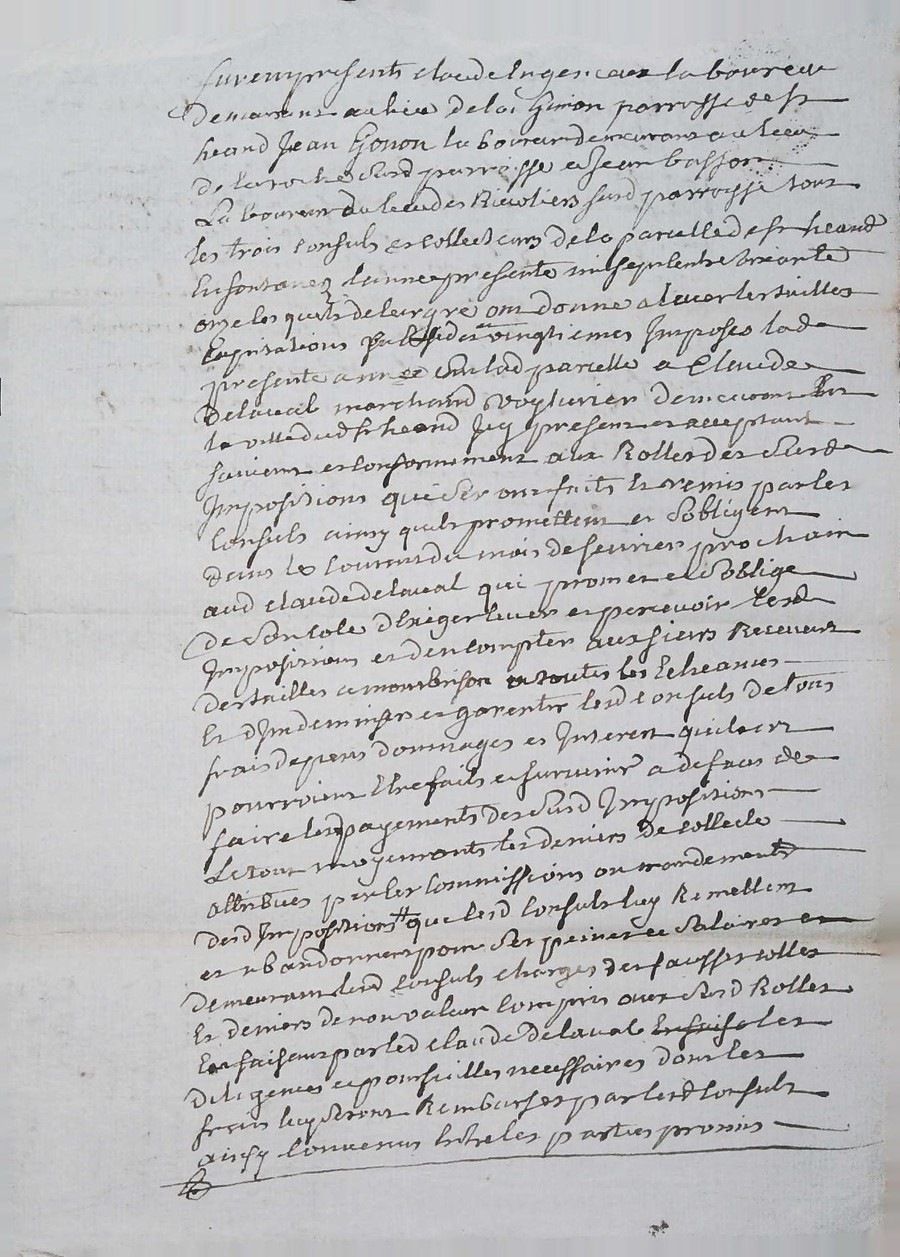 furent presents claude
demeurant au lieu de la Gimon parroisse de st
heand Jean Gonon laboureur demeurant au lieu
de la roche susd parroisse et Jean basson
Laboureur du lieu des Rivoliers susd parroisse tous
les trois consuls et collecteurs de la parcelle de st heand
En fontanez lannee presente mil sept cents soixante
onze lesquels de leur gré ont donne a lever les tailles
Capitations et vingtiemes Imposes lad
presente annee sur lad parcelle a Claude
Delaval marchand voyturier demeurant en
la ville dud st heand Icy present et acceptant
suivant et conformement aux Rolles des susd
Impositions qui seront faits et remis par les
Consuls ainsy quils promettent et sobligent
dans le courant du mois de fevrier prochain
aud claude delaval qui promet et soblige
de son coté dExiger lever et percevoir lesd
Impositions et den compter aux sieurs Receveurs
des tailles a montbrison a toutes les Echeances
Et dIndemniser et garentir lesd consuls de tous
frais depens dommages et Interest qui leur
pourroient Etre faits et survenir a defaut de
faire les payements des susd Impositions
Le tout moyennant les deniers de collecte
attribues par les commissions ou mandements
desd Impositions que lesd Consuls luy Remettent
et abandonnent pour ses peines et salaires et
demeurant lesd consuls charges des fausses cottes
Et deniers de non valeur compris aux susd Rolles
En faisant par led claude delaval les
diligences et poursuittes necessaires dont les
frais luy seront Remburses par lesd consuls
ainsy convenus Entre les parties promis